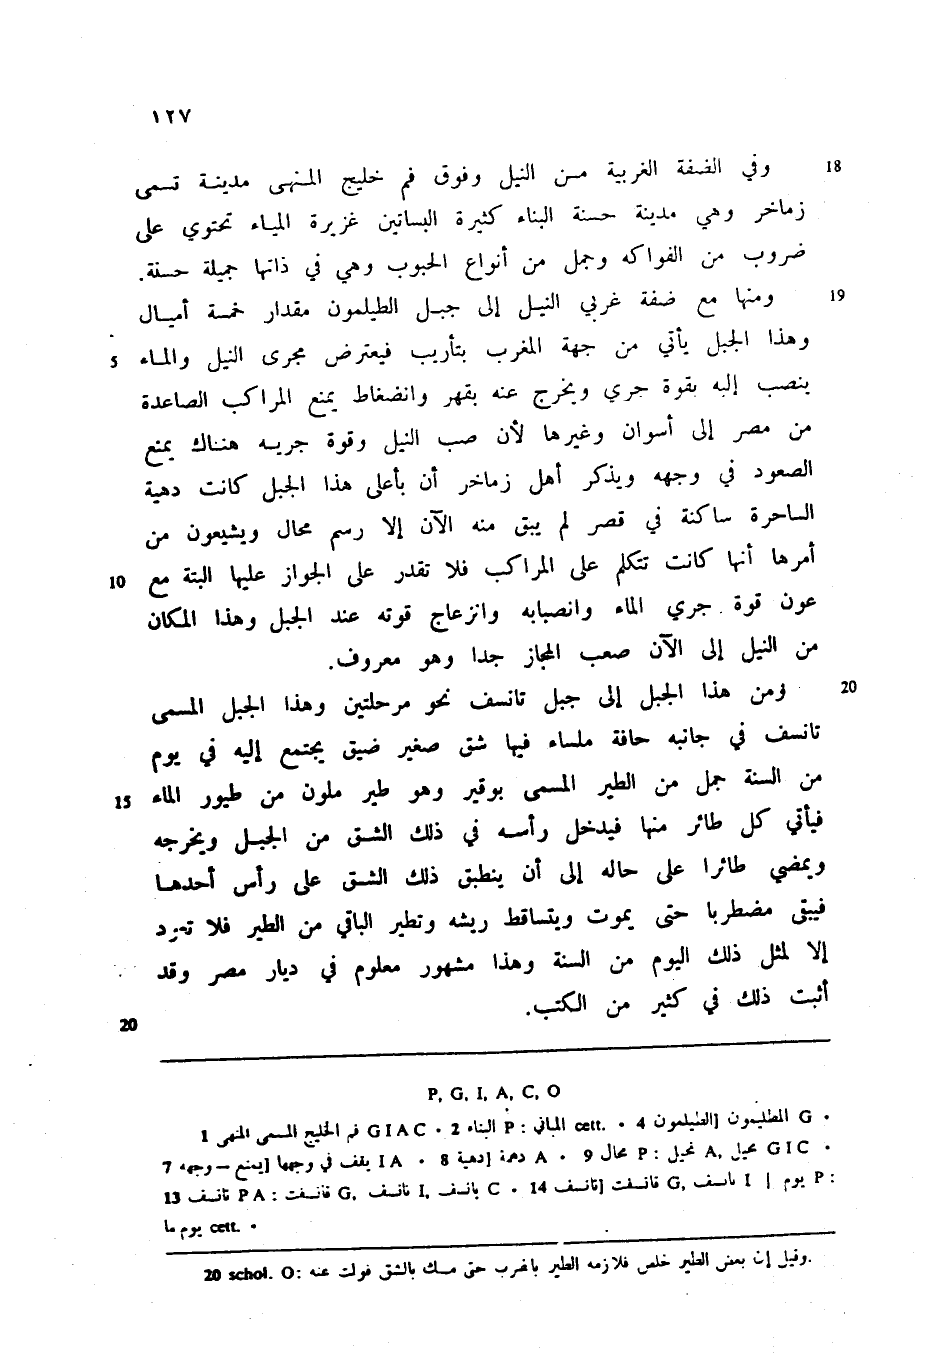 ١٢٧
18 وفي الضفة الغربية من النيل وفوق فم خليج المنهى مدينة تسمى
زماخر وهي مدينة حسنة البناء كثيرة البساتين غزيرة المياء تحتوي على
ضروب من الفواكه وجمل من أنواع الحبوب وهي في ذاتها جميلة حسنة.
19 ومنها مع ضفة غربي النيل إلى جبل الطيلمون مقدار خمسة أميال
وهذا الجبل يأتي من جهة المغرب بتأريب فيعترض مجرى النيل والماء 5
ينصب إليه بقوة جري ويخرج عنه بقهر وانضغاط يمنع المراكب الصاعدة
من مصر إلى أسوان وغيرها لأن صب النيل وقوة جريه هناك يمنع
الصعود في وجهه ويذكر أهل زماخر أن بأعلى هذا الجبل كانت دهية
الساحرة ساكنة في قصر لم يبق منه الآن إلا رسم محال ويشيعون من
أمرها أنها كانت تتكلم على المراكب فلا تقدر على الجواز عليها البتة مع 10
عون قوة جري الماء وانصبابه وانزعاج قوته عند الجبل وهذا المكان
من النيل إلى الآن صعب المجاز جدا وهو معروف.
20 ومن هذا الجبل إلى جبل تانسف نحو مرحلتين وهذا الجبل المسمى
تانسف في جانبه حافة ملساء فيها شق صغير ضيق يجتمع إليه في يوم
من السنة جمل من الطير المسمى بوقير وهو طير ملون من طيور الماء 15
فيأتي كل طائر منها فيدخل رأسه في ذلك الشق من الجبل ويخرجه
ويمضي طائرا على حاله إلى أن ينطبق ذلك الشق على رأس أحدها
فيبقى مضطربا حتى يموت ويتساقط ريشه وتطير الباقي من الطير فلا ترد
إلا لمثل ذلك اليوم من السنة وهذا مشهور معلوم في ديار مصر وقد
أثبت ذلك في كثير من الكتب.
20
P, G, I, A, C, O
1 فم الخليج المسمى المنهى GIAC • 2 البناء P : المباني cett. • 4 الطيلمون] المطليمون G •
7 يمنع – وجهه] يقف في وجهها IA • 8 دهية] دهمة A • 9 محال P : نحيل A, محيل GIC •
13 تانسف PA : قانسف G, تانسف I, يانسف C • 14 تانسف] قانسف G, I | يوم P :
يوم ما cett. •
20 schol. O: وقيل إن بعض الطير خلص فلازمه الطير بالضرب حتى مسك بالشق فولت عنه.